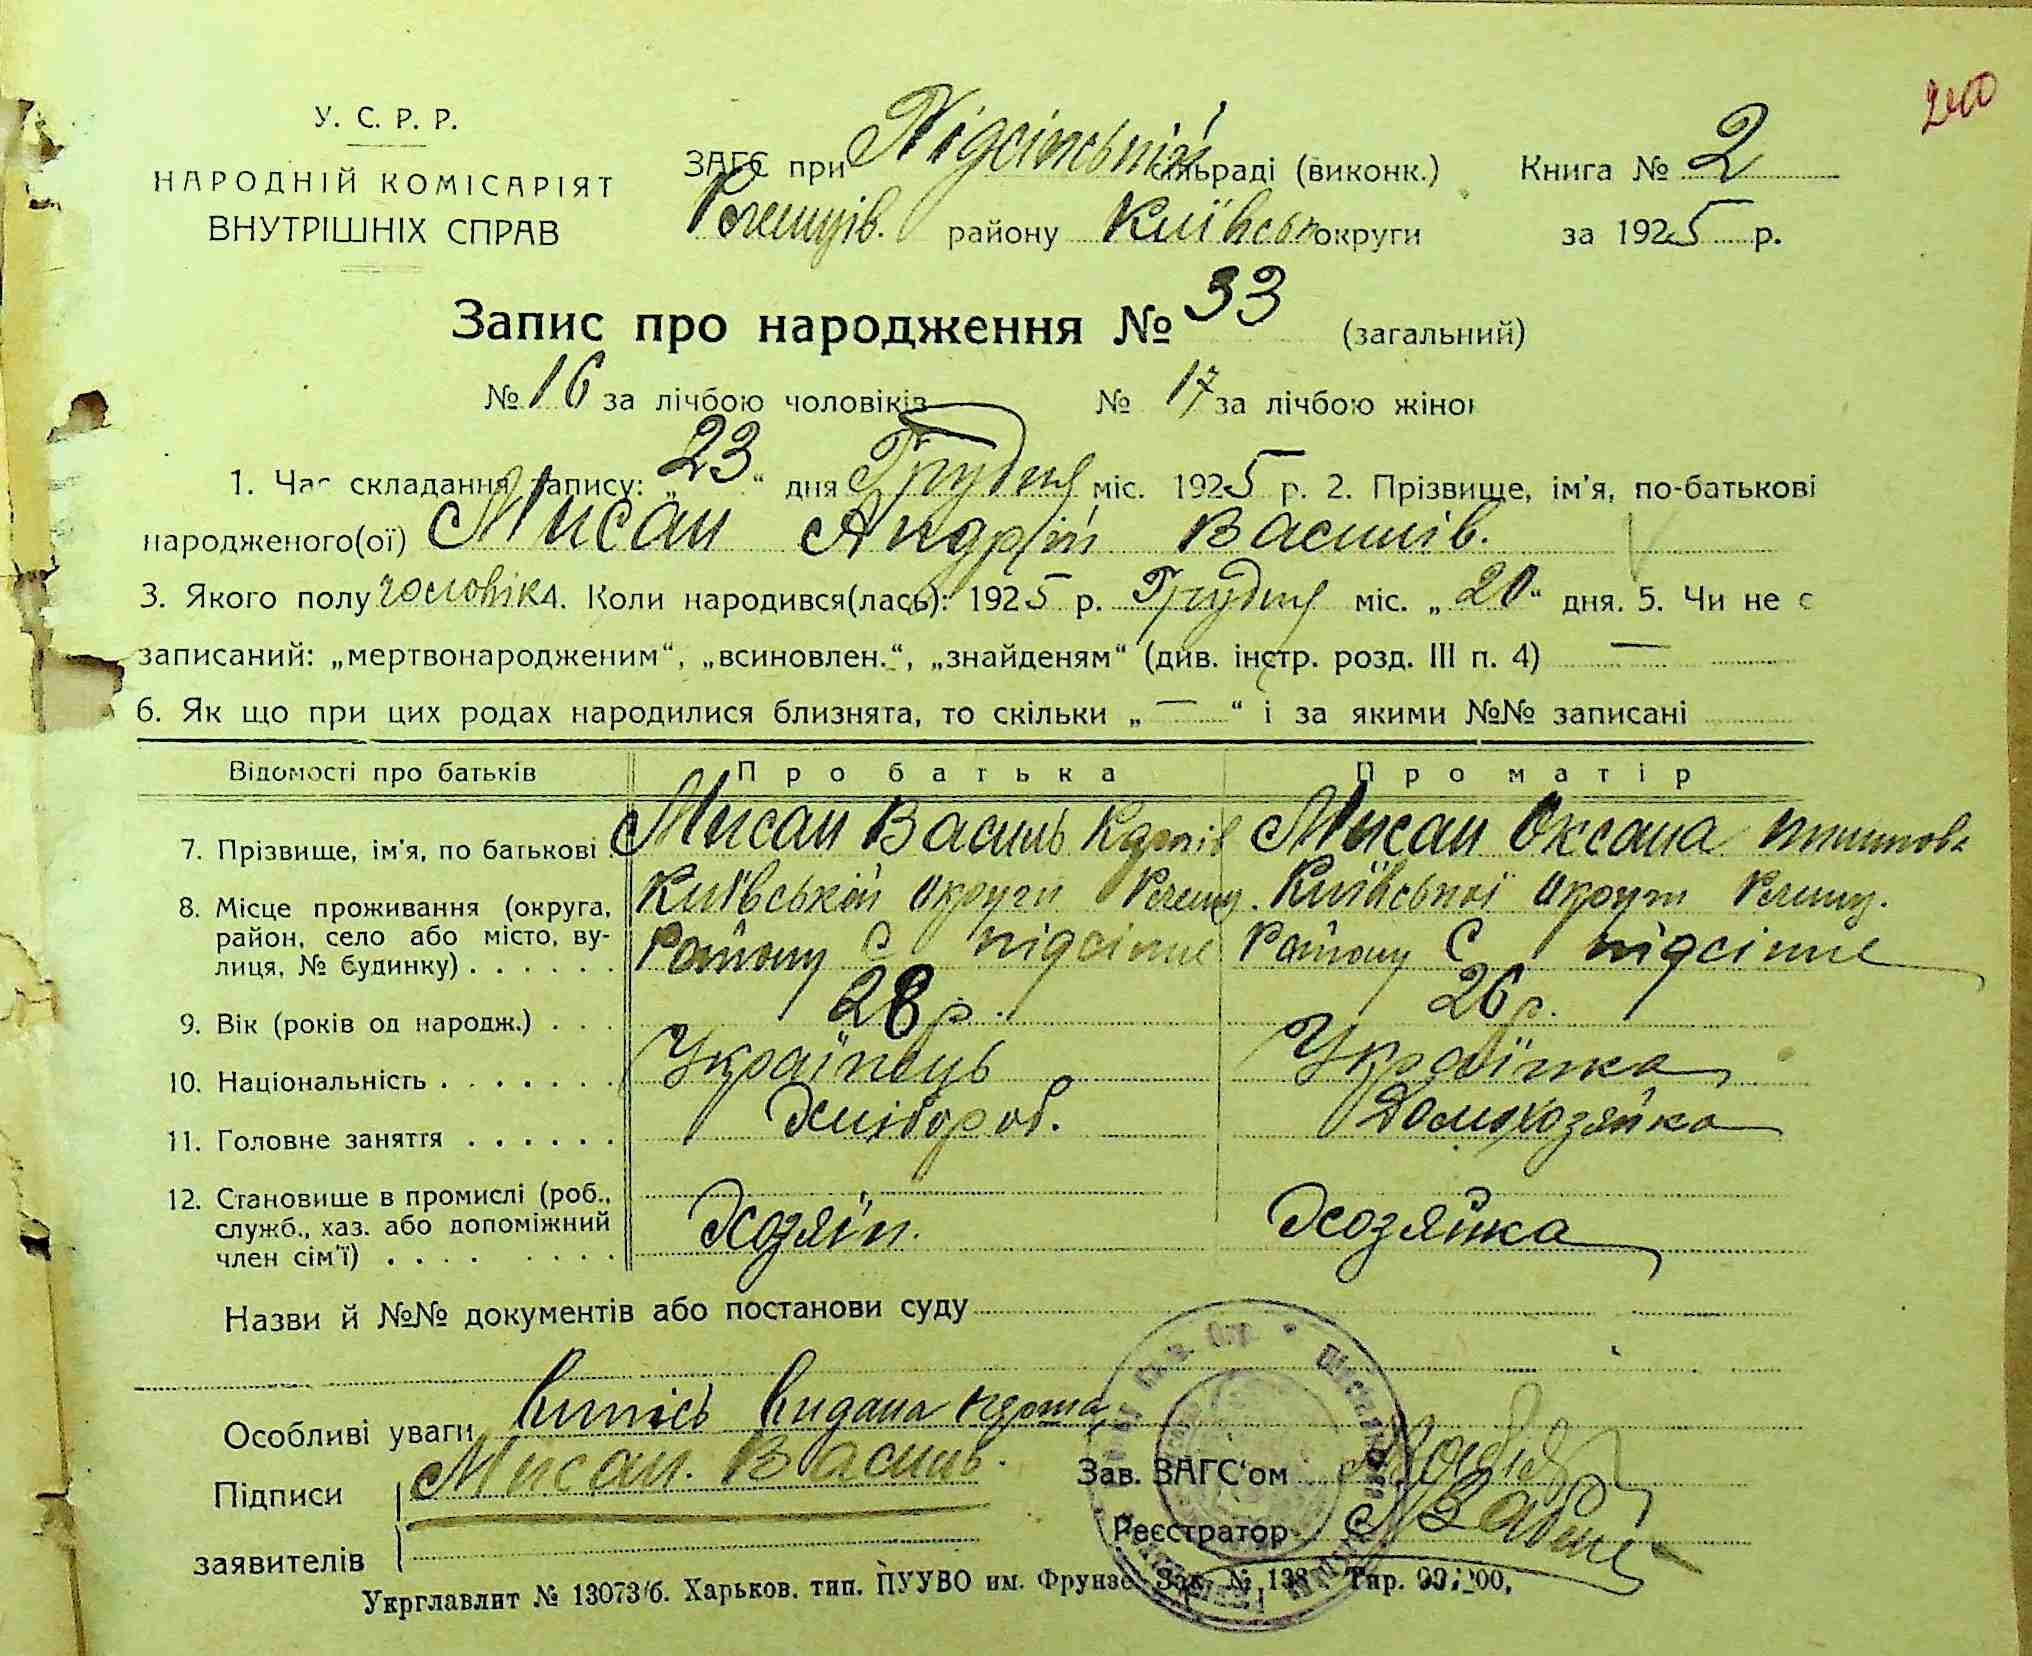 200
У. С. Р. Р.
НАРОДНІЙ КОМІСАРІЯТ
ВНУТРІШНІХ СПРАВ
ЗАГС при Підсінській сільраді (виконк.) Книга № 2
району Київськ округи за 1925 р.
Запис про народження № 33 (загальний)
№ 16 за лічбою чоловіків № 17 за лічбою жінок
1. Час складання запису: „23“ дня Грудня міс. 1925 р. 2. Прізвище, ім'я, по-батькові
народженого(ої) Мисан Андрій Василів.
3. Якого полу чоловік 4. Коли народився(лась): 1925 р. Грудня міс. „20“ дня. 5. Чи не є
записаний: „мертвонародженим“, „всиновлен.“, „знайденям“ (див. інстр. розд. III п. 4) —
6. Як що при цих родах народилися близнята, то скільки „—“ і за якими №№ записані
Відомості про батьків Про батька Про матір
7. Прізвище, ім'я, по батькові . Мисан Василь Мисан Оксана
8. Місце проживання (округа, район, село або місто, вулиця, № будинку) . . . . . .
Київській округи Київської округи
Району С Підсінне Району С Підсінне
9. Вік (років од народж.) . . . 28 р. 26 р.
10. Національність . . . . . . . Українець Українка
11. Головне заняття . . . . . . Хлібороб. Домохозяйка
12. Становище в промислі (роб., служб., хаз. або допоміжний член сім'ї) . . . . . . . . Хозяїн. Хозяйка
Назви й №№ документів або постанови суду
Особливі уваги Випись видана
Підписи Мисан. Василь.
заявителів
Зав. ЗАГС'ом
Реєстратор
Укрглавлит № 13073/б. Харьков. тип. ПУУВО им. Фрунзе. Зак. № 138 Тир.